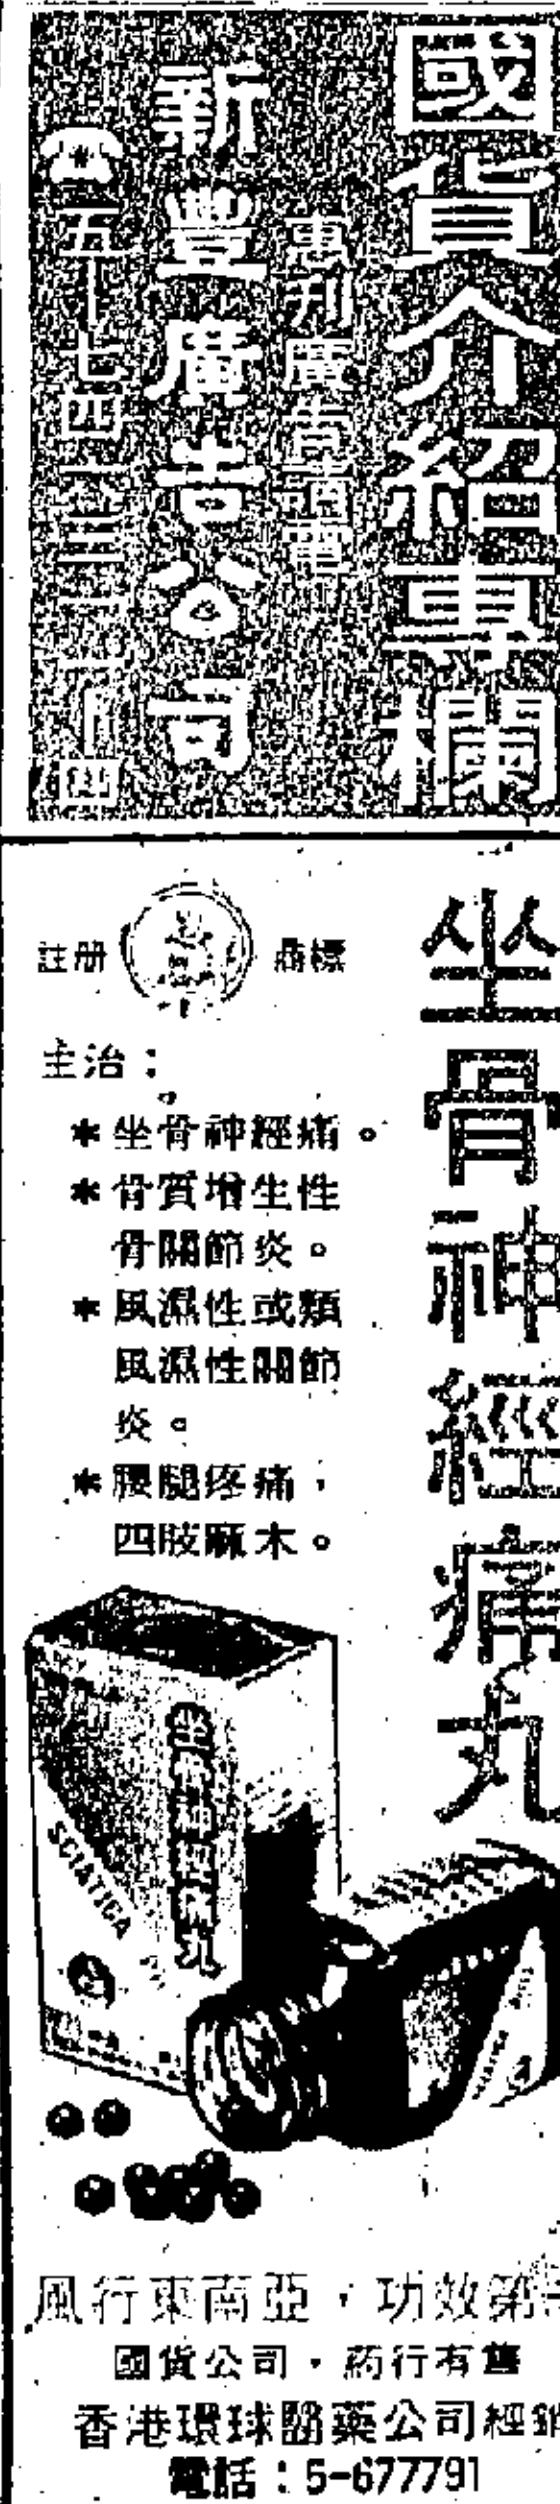 國貨介紹專欄
惠刋廣告請電
新豐廣告公司
坐骨神經痛丸
註册
商標
主治：
*坐骨神經痛。
*骨質增生性
骨關節炎。
*風濕性或類
風濕性關節
炎。
*腰腿疼痛，
四肢麻木。
坐骨神經痛丸
SCIATICA
風行東南亞，功效第一
國貨公司，葯行有售
香港環球醫藥公司經銷
電話：5-677791